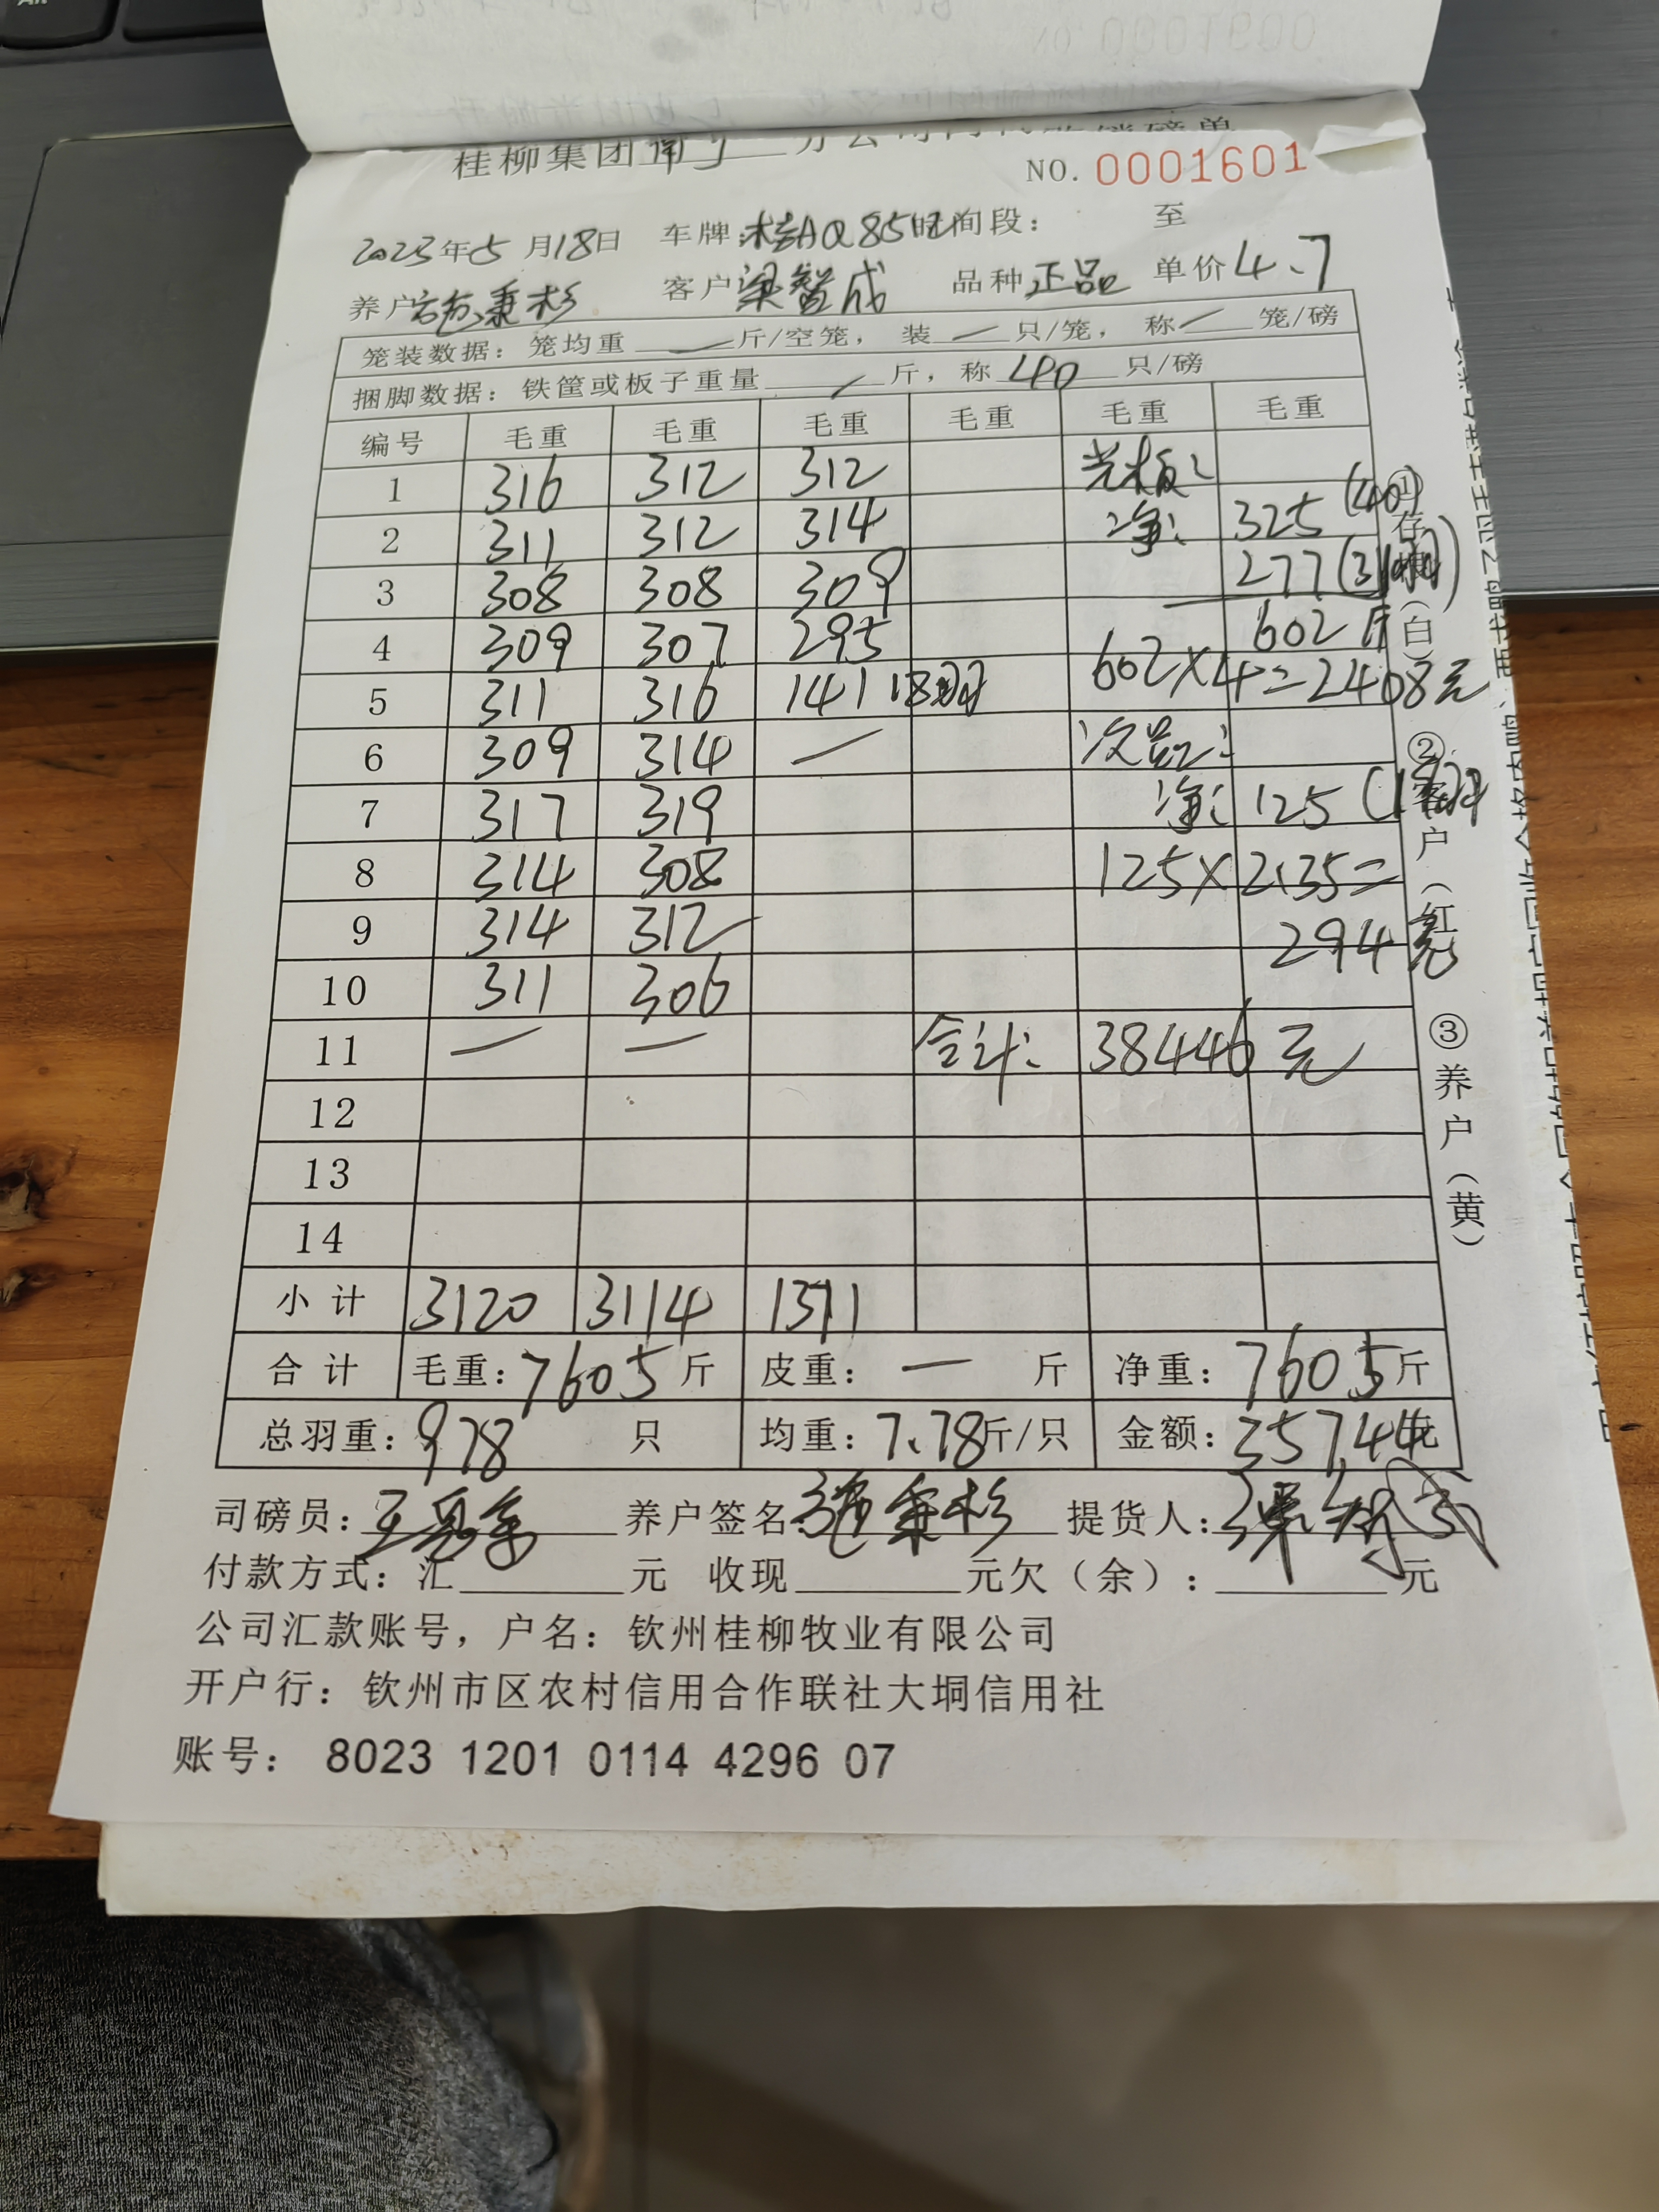 桂柳集团南宁
NO. 0001601
2023年5月18日 车牌:桂AQ85 时间段: 至
养户 秉杉 客户 梁智成 品种 正品 单价 4.7
笼装数据: 笼均重 — 斤/空笼, 装 — 只/笼, 称 — 笼/磅
捆脚数据: 铁筐或板子重量 / 斤, 称 40 只/磅
编号 毛重 毛重 毛重 毛重 毛重 毛重
1 316 312 312 光板:
2 311 312 314 净: 325 (40)
3 308 308 309 277 (31
4 309 307 295 602斤
5 311 316 141 18 602×4=2408元
6 309 314 — 次品:
7 317 319 净: 125
8 314 308 125×2.35=
9 314 312 294元
10 311 306
11 — — 合计: 38446元
12
13
14
小计 3120 3114 1371
合计 毛重: 7605斤 皮重: — 斤 净重: 7605斤
总羽重: 978 只 均重: 7.78斤/只 金额: 35744元
司磅员: 养户签名: 秉杉 提货人:
付款方式: 汇 元 收现 元欠(余): 元
公司汇款账号, 户名: 钦州桂柳牧业有限公司
开户行: 钦州市区农村信用合作联社大垌信用社
账号: 8023 1201 0114 4296 07
①存根(白) ②客户(红) ③养户(黄)